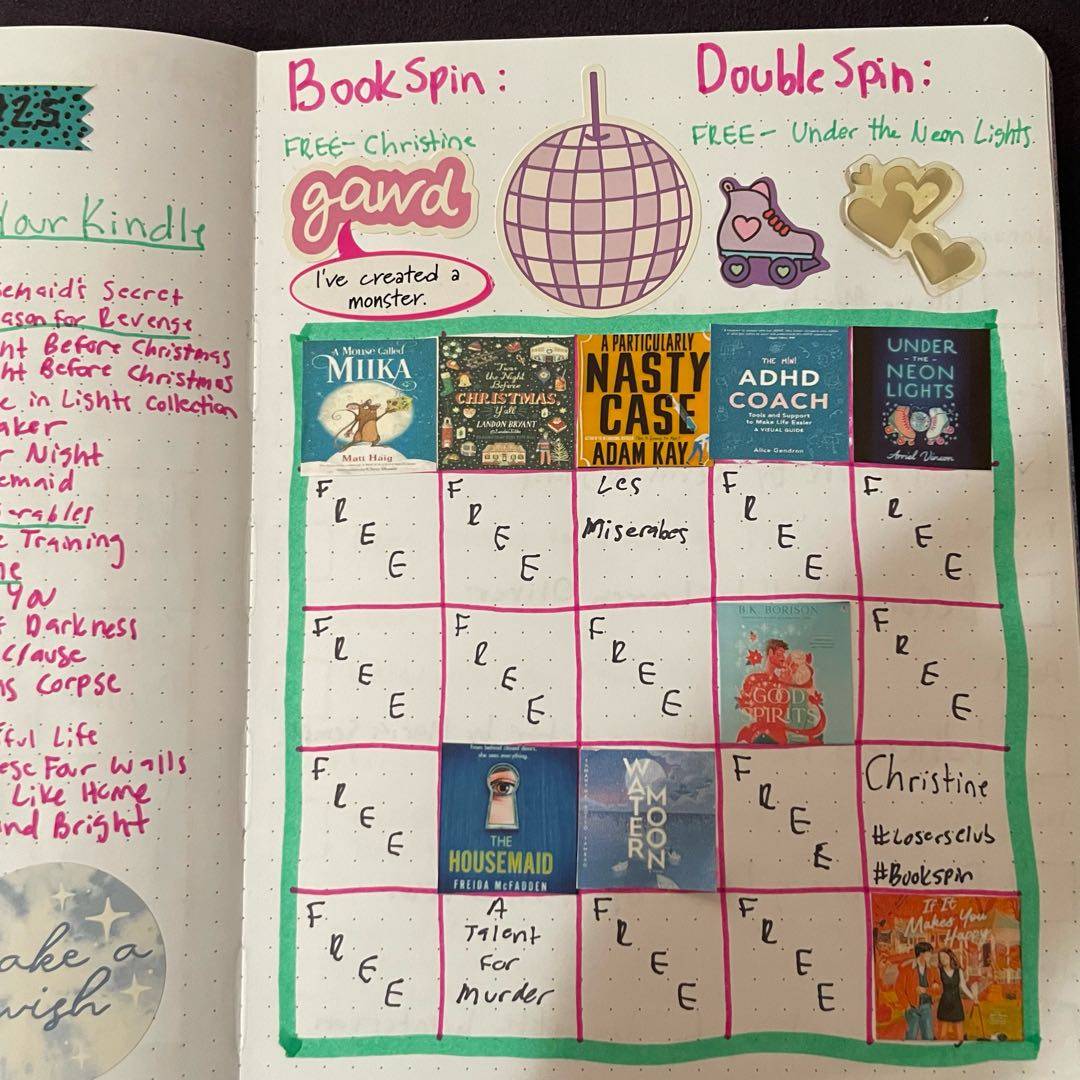 25
Your Kindle
Secret
for Revenge
Before Christmas
Before Christmas
in Lights Collection
Night
Training
You
Darkness
Clause
Corpse
Life
Four Walls
Like Home
and Bright
a
wish
BookSpin:
FREE- Christine
gawd
I've created a
monster.
DoubleSpin:
FREE- Under the Neon Lights
A Mouse Called
MIIKA
Matt Haig
'Twas
the Night
Before
CHRISTMAS,
Y'all
LANDON BRYANT
A PARTICULARLY
NASTY
CASE
ADAM KAY
THE MINI
ADHD
COACH
Tools and Support
to Make Life Easier
A VISUAL GUIDE
Alice Gendron
UNDER
-THE-
NEON
LIGHTS
Arriel Vinson
FREE
FREE
Les
Miserabes
FREE
FREE
FREE
FREE
FREE
B.K. BORISON
GOOD
SPIRITS
FREE
FREE
From behind closed doors,
she sees everything.
THE
HOUSEMAID
FREIDA McFADDEN
WATER
MOON
FREE
Christine
#Losersclub
#Bookspin
FREE
A
Talent
For
Murder
FREE
FREE
If It
Makes You
Happy